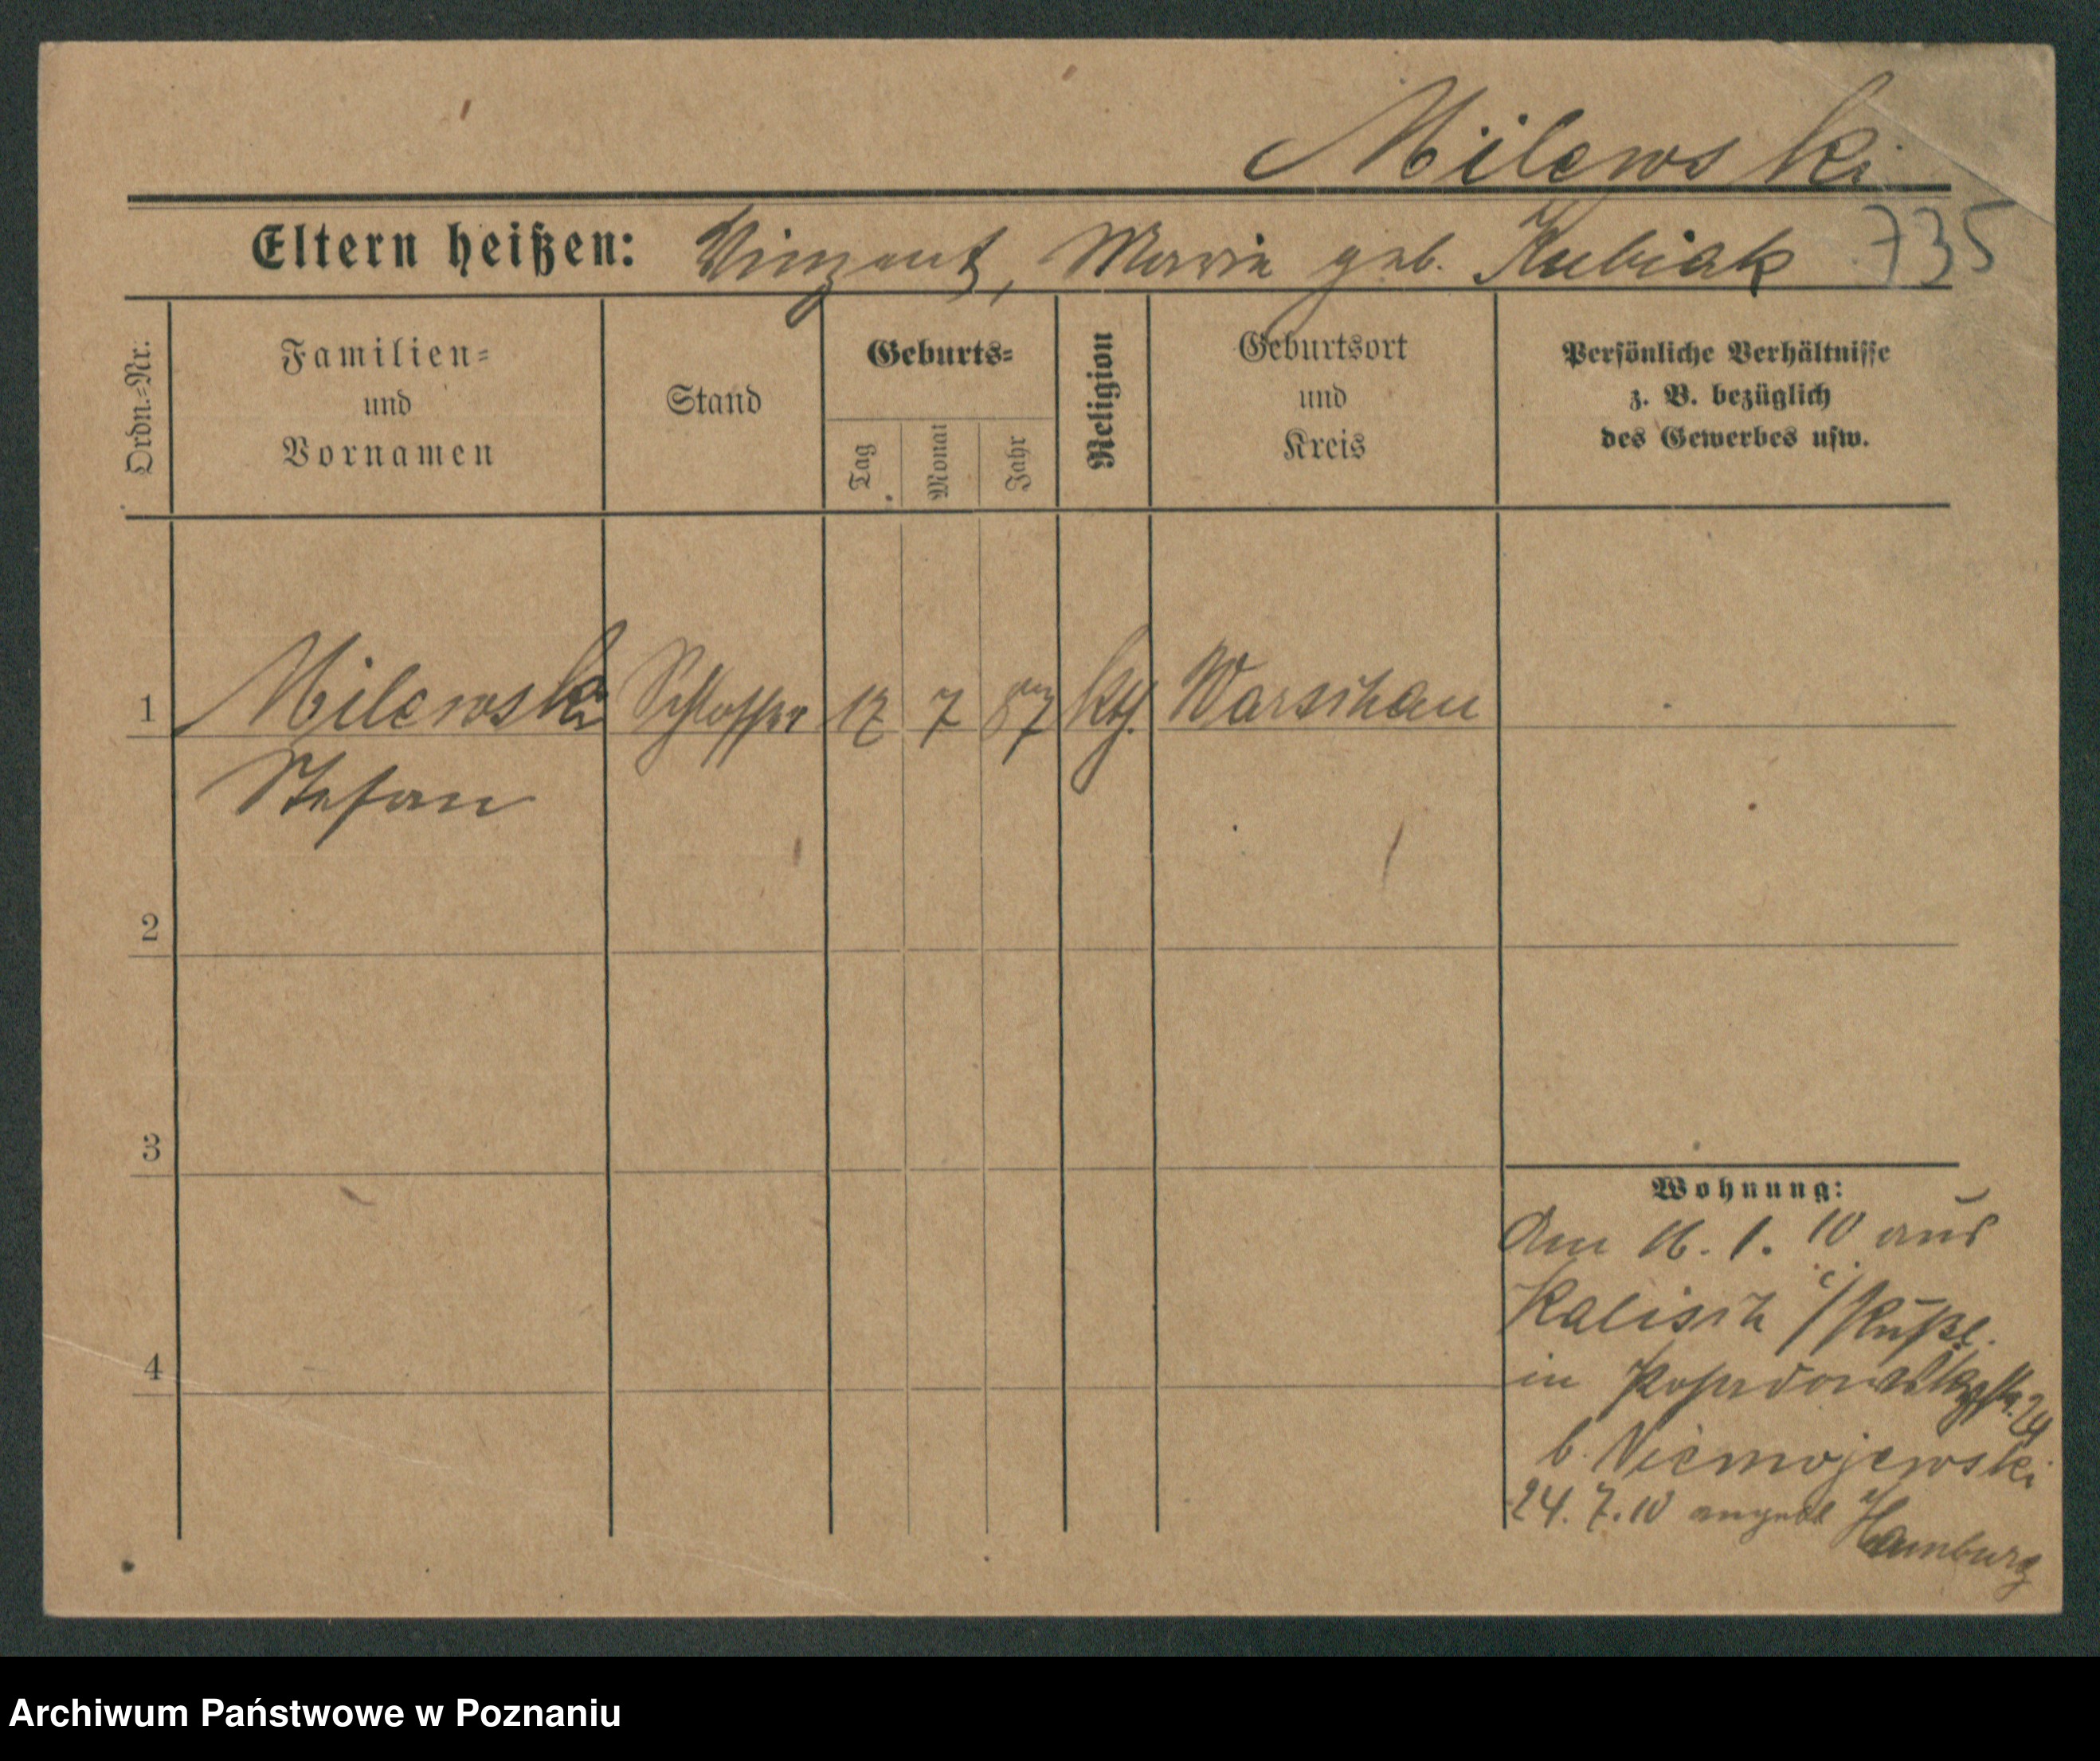 Milewski
Eltern heißen: Vinzent, Maria geb. Kubiak 735
Ordn.=Nr.
Familien=
und
Vornamen
Stand
Geburts=
Tag
Monat
Jahr
Religion
Geburtsort
und
Kreis
Persönliche Verhältnisse
z. B. bezüglich
des Gewerbes usw.
1 Milewski Schlosser 17 7 87 kth. Warschau
Stefan
2
3
4
Wohnung:
Am 16. 1. 10 aus
Kalisch i/Rußl.
in
b. Niemojewski
24. 7. 10 angebl Hamburg
Archiwum Państwowe w Poznaniu